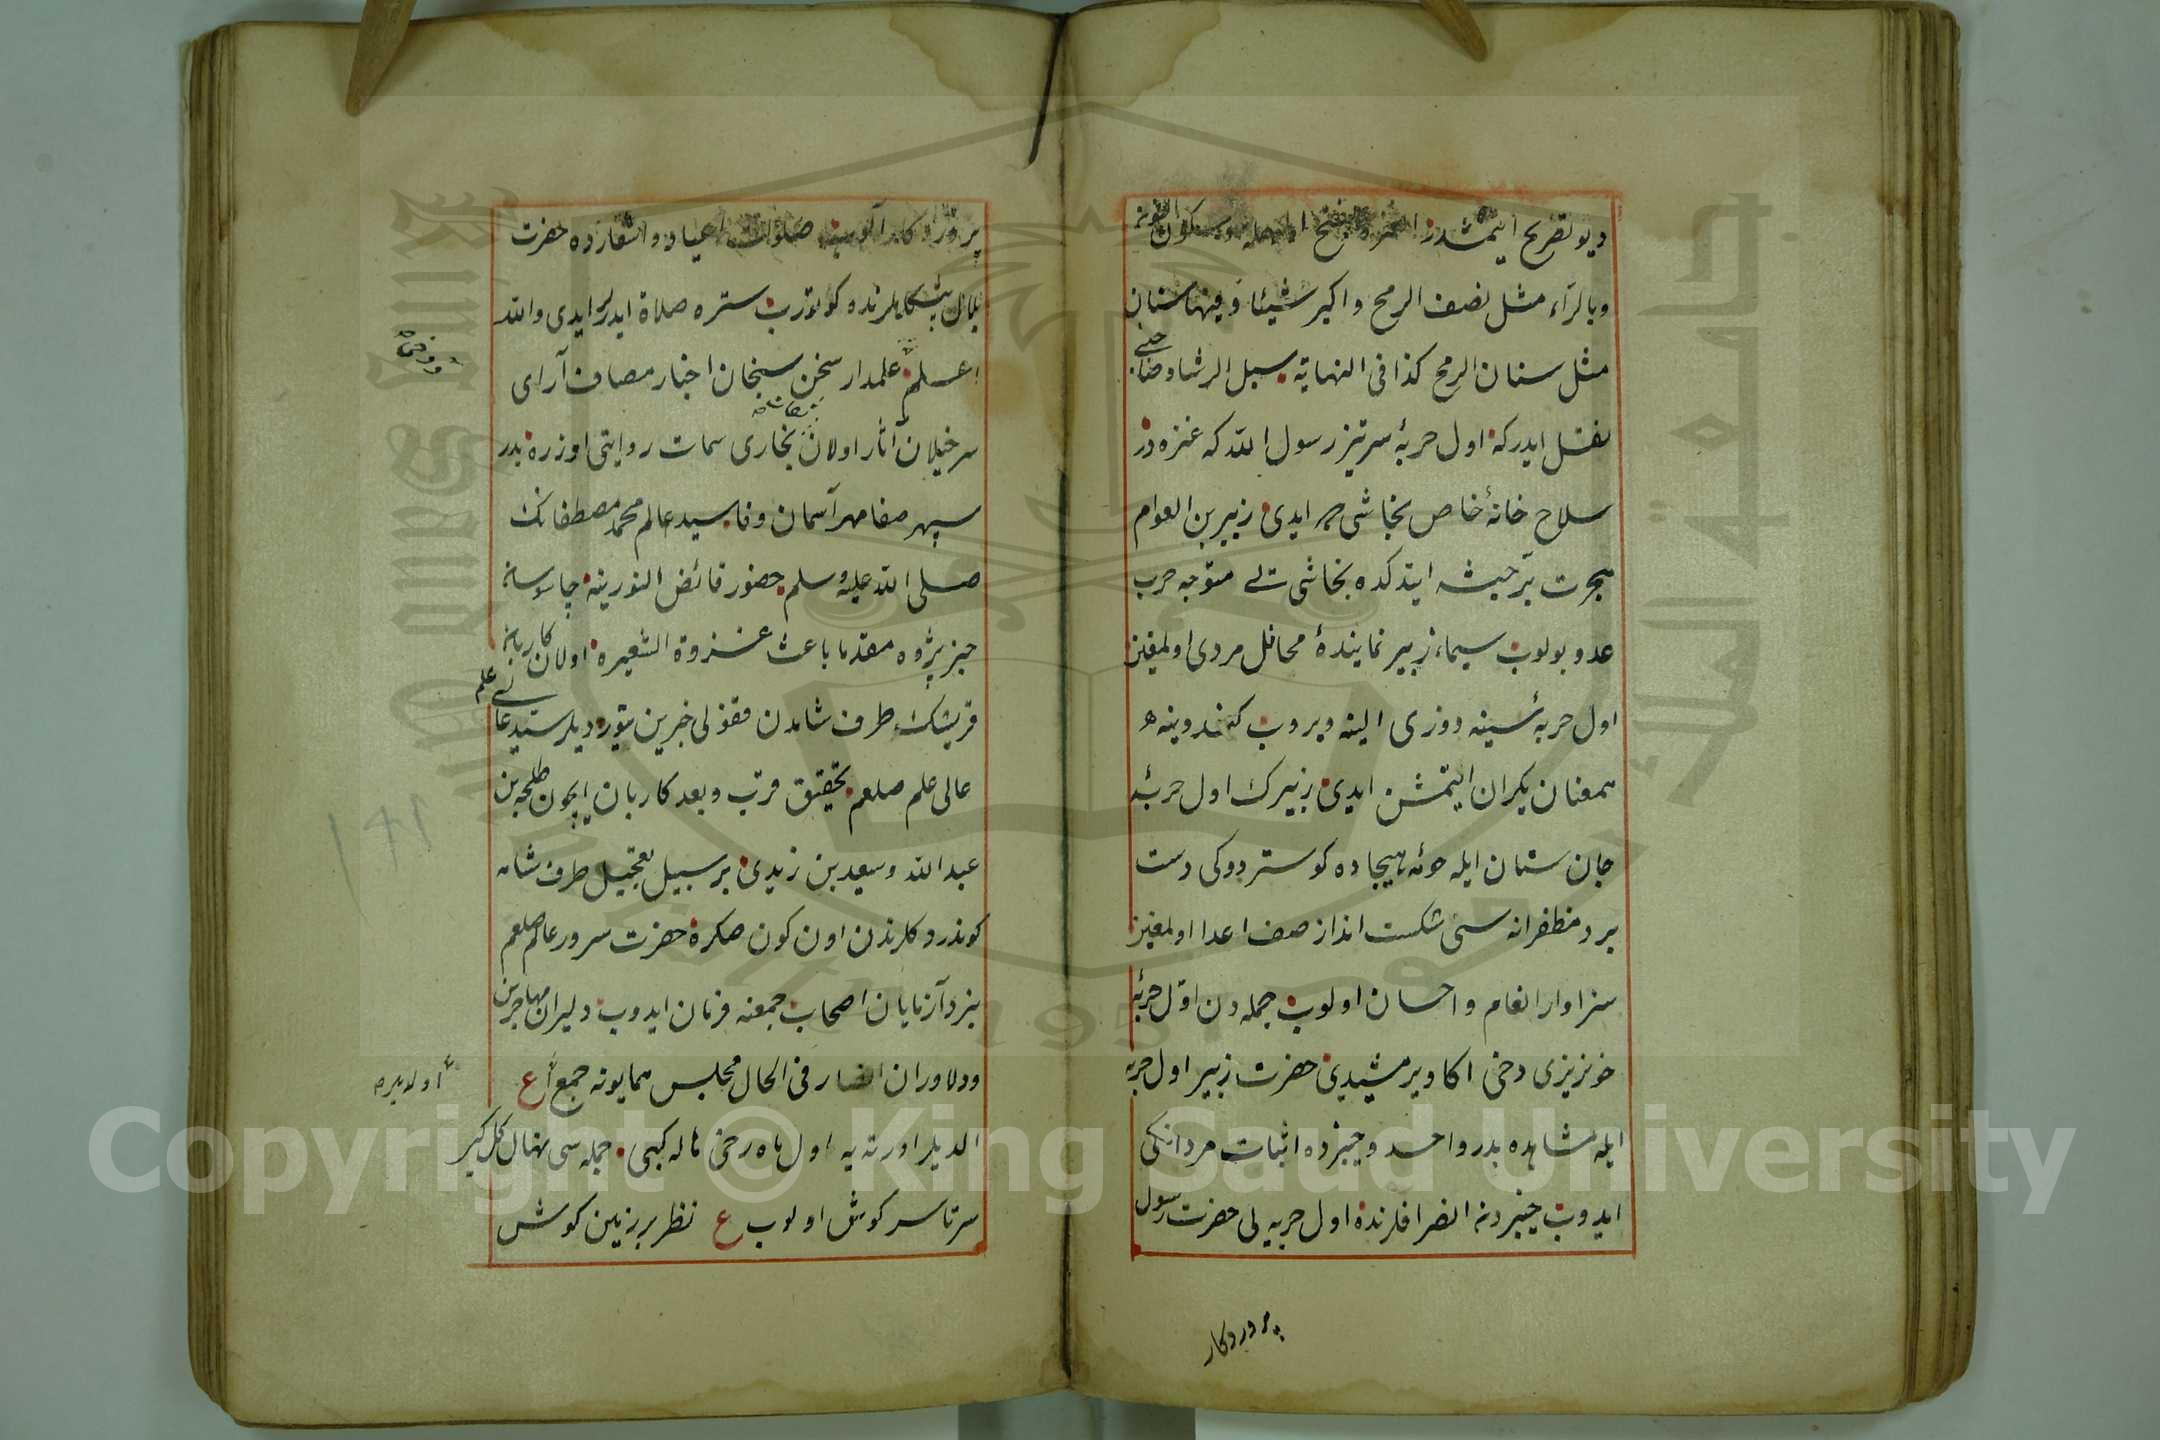 دیو تصریح ایتمشدر العنزة بفتح المهمله وسکون
وبالزاء مثل نصف الرمح واکبر شیئا وفیها سنان
مثل سنان الرمح کذا فی النهایة سبل الرشاد صاحبی
نقل ایدرکه اول حربهٔ سرتیز رسول الله که عنزه در
سلاح خانهٔ خاص نجاشی ایدی زبیر بن العوام
هجرت بر حبشه ایتدکده نجاشی متوجه حرب
عدو بولوب سیماء زبیر نمایندهٔ محافل مردی اولمغین
اول حربهٔ سینه دوزی الینه ویروب کندوینه
همعنان یکران ایتمش ایدی زبیرک اول حربهٔ
جان ستان ایله حومهٔ هیجاده کوستردوکی دست
برد مظفرانه سی شکست انداز صف اعدا اولمغین
سزاوار انعام واحسان اولوب جمله دن اول حربهٔ
خونریزی دخی اکا ویرمشیدی حضرت زبیر اول حربه
ایله مشاهده بدر واحد وخیبرده اثبات مردانکی
ایدوب خیبردنه انصرافلرنده اول حربه یی حضرت رسول
پروردکار
پروردکار الوب صلوات اعیاد واسفارده حضرت
بلال پیشکاهلرنده کوتورب ستره صلاة ایدرلر ایدی والله
اعلم علمدار سخن سنجان اخبار مصاف آرای
سرخیلان آثار اولان بخاری سمات روایتی اوزره بدر
سپهر صفا مهر آسمان وفا سید عالم محمد مصطفانک
صلی الله علیه وسلم حضور فائض النورینه جاسوسانه
خبر پژوه مقدما باعث غزوة العشیره اولان کاربانه
قریشک طرف شامدن قفولی خبرین یتوردیلر سید عالی علم
عالی علم صلعم تحقیق قرب وبعد کاربان ایچون طلحه بن
عبد الله وسعید بن زیدی بر سبیل تعجیل طرف شامه
کوندردکلرندن اون کون صکره حضرت سرور عالم صلعم
نبرد آزمایان اصحاب جمعنه فرمان ایدوب دلیران مهاجرین
ودلاوران انصار فی الحال مجلس همایونه جمع ع
الدیلر اورته یه اول ماه رخی هاله کبی جمله سی نهال کل کبی
سرتاسر کوش اولوب ع نظر بر زمین کوش
اولدیلر